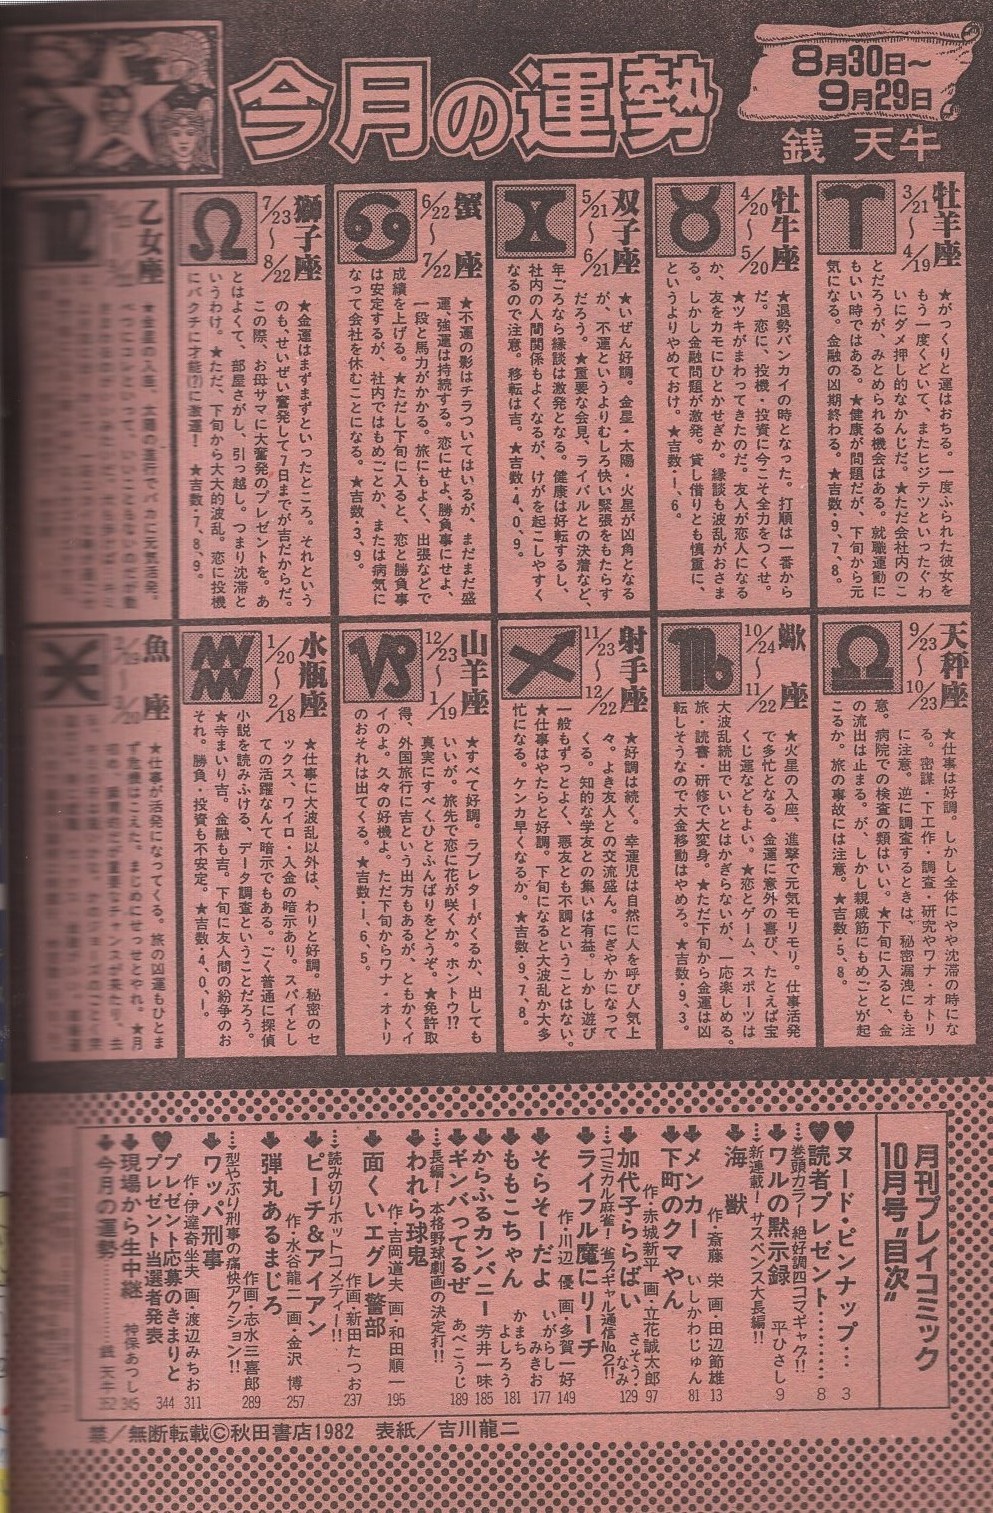 今月の運勢
8月30日〜
9月29日
銭 天牛
牡羊座
3/21〜4/19
★がっくりと運はおちる。一度ふられた彼女を
もう一度くどいて、またヒジテツといったぐわ
いにダメ押し的なかんじだ。★ただ会社内のこ
とだろうが、みとめられる機会はある。就職運動に
もいい時ではある。★健康が問題だが、下旬から元
気になる。金融の凶期終わる。★吉数・9、7、8。
牡牛座
4/20〜5/20
★退勢バンカイの時となった。打順は一番から
だ。恋に、投機・投資に今こそ全力をつくせ。
★ツキがまわってきたのだ。友人が恋人になる
か、友をカモにひとかせぎか。縁談も波乱がおさま
る。しかし金融問題が激発。貸し借りとも慎重に、
というよりやめておけ。★吉数・1、6。
双子座
5/21〜6/21
★いぜん好調。金星・太陽・火星が凶角となる
が、不運というよりむしろ快い緊張をもたらす
だろう。★重要な会見、ライバルとの決着など、
年ごろなら縁談は激発となる。健康は好転するし、
社内の人間関係もよくなるが、けがを起こしやすく
なるので注意。移転は吉。★吉数・4、0、9。
蟹座
6/22〜7/22
★不運の影はチラついてはいるが、まだまだ盛
運、強運は持続する。恋にせよ、勝負事にせよ、
一段と馬力がかかる。旅にもよく、出張などで
成績を上げる。★ただし下旬に入ると、恋と勝負事
は安定するが、社内ではもめごとか、または病気に
なって会社を休むことになる。★吉数・3、9。
獅子座
7/23〜8/22
★金運はまずまずといったところ。それという
のも、せいぜい奮発して7日までが吉だからだ。
この際、お母サマに大奮発のプレゼントを。あ
とはよくて、部屋さがし、引っ越し。つまり沈滞と
いうわけ。★ただ、下旬から大大的波乱。恋に投機
にバクチに才能(?)に激運! ★吉数・7、8、9。
乙女座
★金星の入座、太陽の進行でバカに元気活発。
天秤座
9/23〜10/23
★仕事は好調。しかし全体にやや沈滞の時にな
る。密謀・下工作・調査・研究やワナ・オトリ
に注意。逆に調査するときは、秘密漏洩にも注
意。病院での検査の類はいい。★下旬に入ると、金
の流出は止まる。が、しかし親戚筋にもめごとが起
こるか。旅の事故には注意。★吉数・5、8。
蠍座
10/24〜11/22
★火星の入座、進撃で元気モリモリ。仕事活発
で多忙となる。金運に意外の喜び、たとえば宝
くじ運などもよい。★恋とゲーム、スポーツは
大波乱続出でいいとはかぎらないが、一応楽しめる。
旅・読書・研修で大変身。★ただ下旬から金運は凶
転しそうなので大金移動はやめろ。★吉数・9、3。
射手座
11/23〜12/22
★好調は続く。幸運児は自然に人を呼び人気上
々。よき友人との交流盛ん。にぎやかになって
くる。知的な学友との集いは有益。しかし遊び
一般もずっとよく、悪友とも不調ということはない。
★仕事はやたらと好調。下旬になると大波乱か大多
忙になる。ケンカ早くなるか。★吉数・9、7、8。
山羊座
12/23〜1/19
★すべて好調。ラブレターがくるか、出しても
いいが。旅先で恋に花が咲くか。ホントウ!?
真実にすべくひとふんばりをどうぞ。★免許取
得、外国旅行に吉という出方もあるが、ともかくイ
イのよ。久々の好機よ。ただ下旬からワナ・オトリ
のおそれは出てくる。★吉数・1、6、5。
水瓶座
1/20〜2/18
★仕事に大波乱以外は、わりと好調。秘密のセ
ックス、ワイロ・入金の暗示あり。スパイとし
ての活躍なんて暗示でもある。ごく普通に探偵
小説を読みふける、データ調査ということだろう。
★寺まいり吉。金融も吉。下旬に友人間の紛争のお
それ。勝負・投資も不安定。★吉数・4、0、1。
魚座
2/19〜3/20
★仕事が活発になってくる。旅の凶運もひとま
ず危機はこえた。まじめにせっせとやれ。★月
月刊プレイコミック
10月号“目次”
♥ヌード・ピンナップ… 3
♥読者プレゼント……… 8
…巻頭カラー 絶好調四コマギャグ!!
ワルの黙示録 平ひさし 9
…新連載! サスペンス大長編!!
海獣 作・斎藤栄 画・田辺節雄 13
メンカー いしかわじゅん 81
下町のクマやん 作・赤城新平 画・立花誠太郎 97
加代子ららばい さそう・なみ 129
…コミカル麻雀! 雀ラギャル通信No.2!!
ライフル魔にリーチ 作・川辺優 画・多賀一好 149
そらそーだよ いがらしみきお 177
ももこちゃん かまちよしろう 181
からふるカンパニー 芳井一味 185
ギンバってるぜ あべこうじ 189
…長編! 本格野球劇画の決定打!!
われら球鬼 作・吉岡道夫 画・和田順一 195
面くいエグレ警部 作画・新田たつお 237
…読み切りホットコメディー!!
ピーチ&アイアン 作・水谷龍二 画・金沢博 257
弾丸あるまじろ 作画・志水三喜郎 289
…型やぶり刑事の痛快アクション!!
ワッパ刑事 作・伊達奇坐夫 画・渡辺みちお 311
♥プレゼント応募のきまりと
プレゼント当選者発表 344
現場から生中継 神保あつし 345
今月の運勢 銭天牛 352
禁/無断転載©秋田書店1982 表紙/吉川龍二